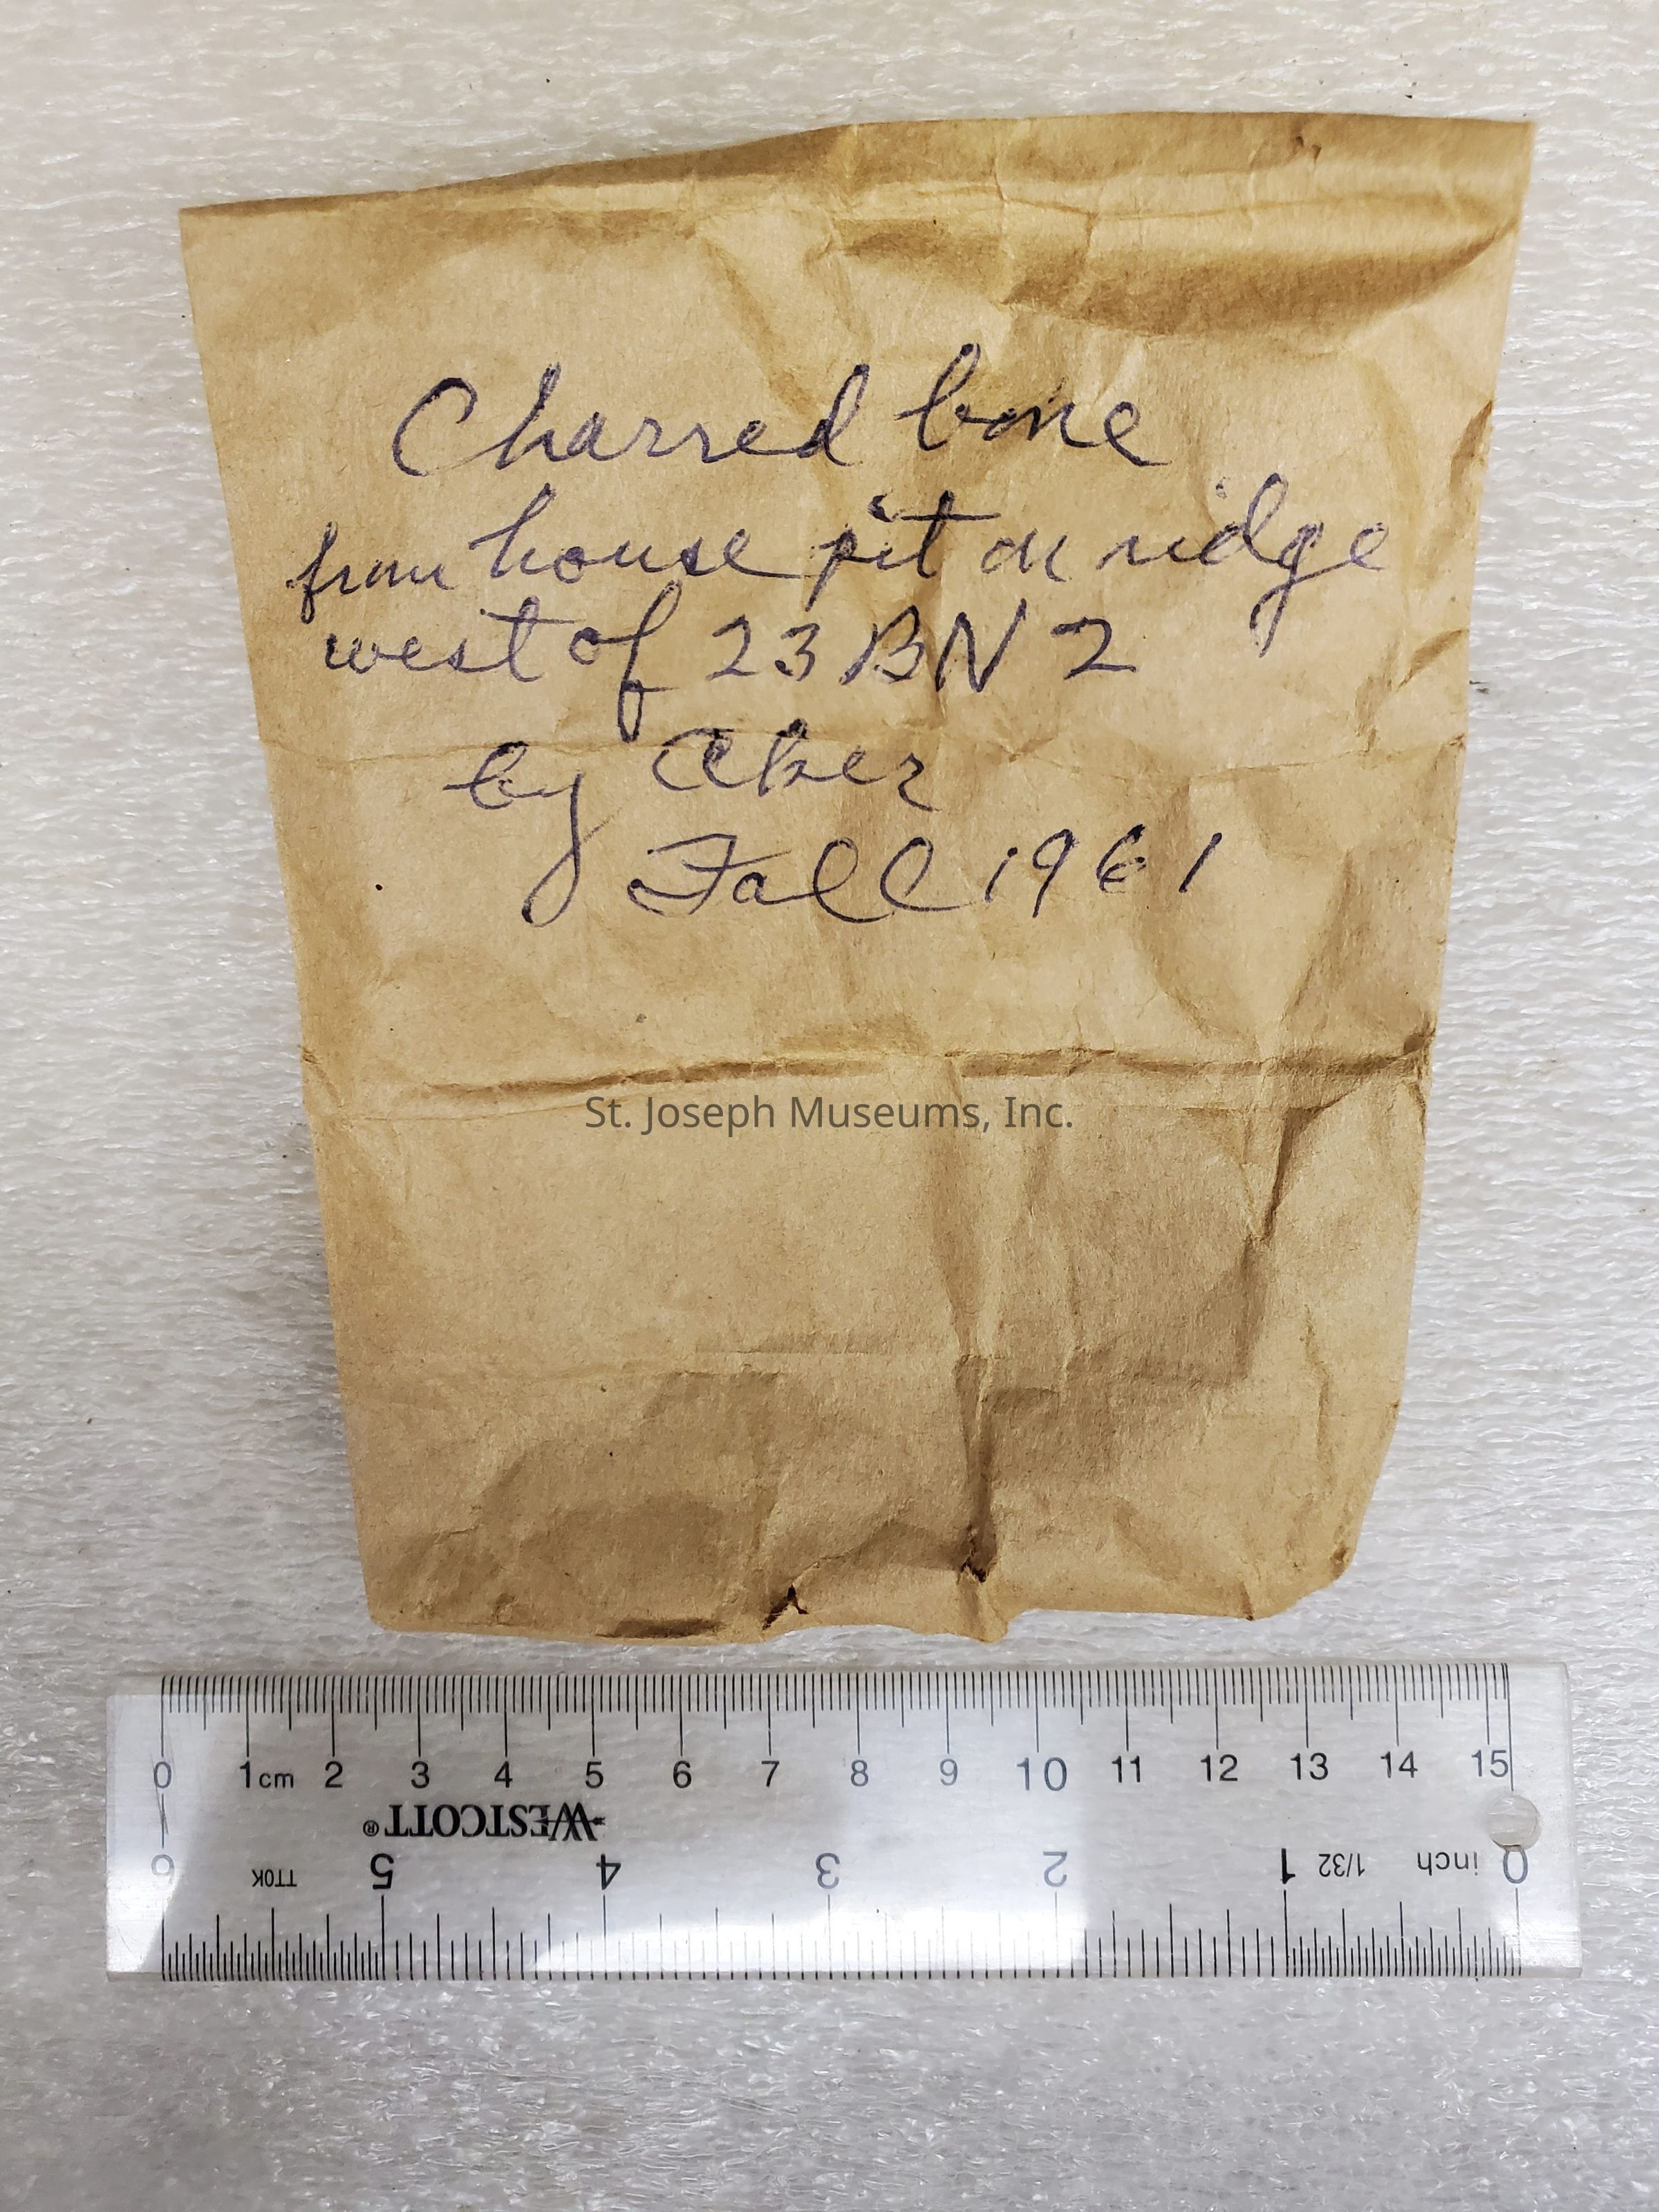 Charred bone
from house pit on ridge
west of 23 BN 2
by Aker
Fall 1961
St. Joseph Museums, Inc.
0 1cm 2 3 4 5 6 7 8 9 10 11 12 13 14 15
WESTCOTT®
6 TT0K 5 4 3 2 1 1/32 inch 0